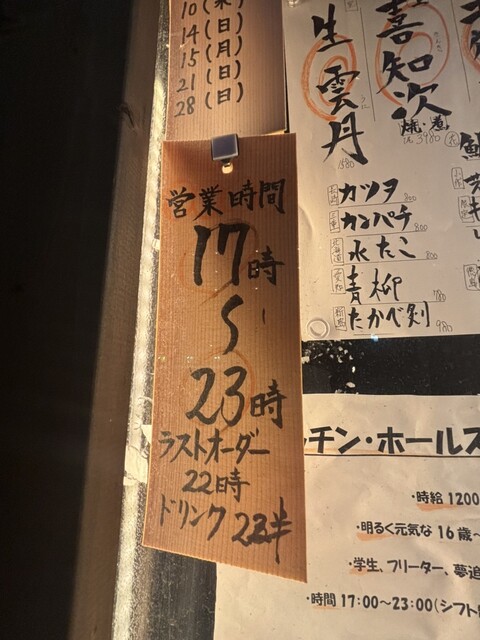 10(木)
14(日)
15(月)
21(日)
28(日)
営業時間
17時
〜
23時
ラストオーダー
22時
ドリンク 22半
喜知次
焼・煮
3980
生雲丹
1580
カツオ 800
三重 カンパチ 800
北海道 水たこ 800
愛知 青柳 780
たかべ刺 980
チン・ホールス
・時給 1200
・明るく元気な 16 歳〜
・学生、フリーター、夢追
・時間 17:00〜23:00(シフト